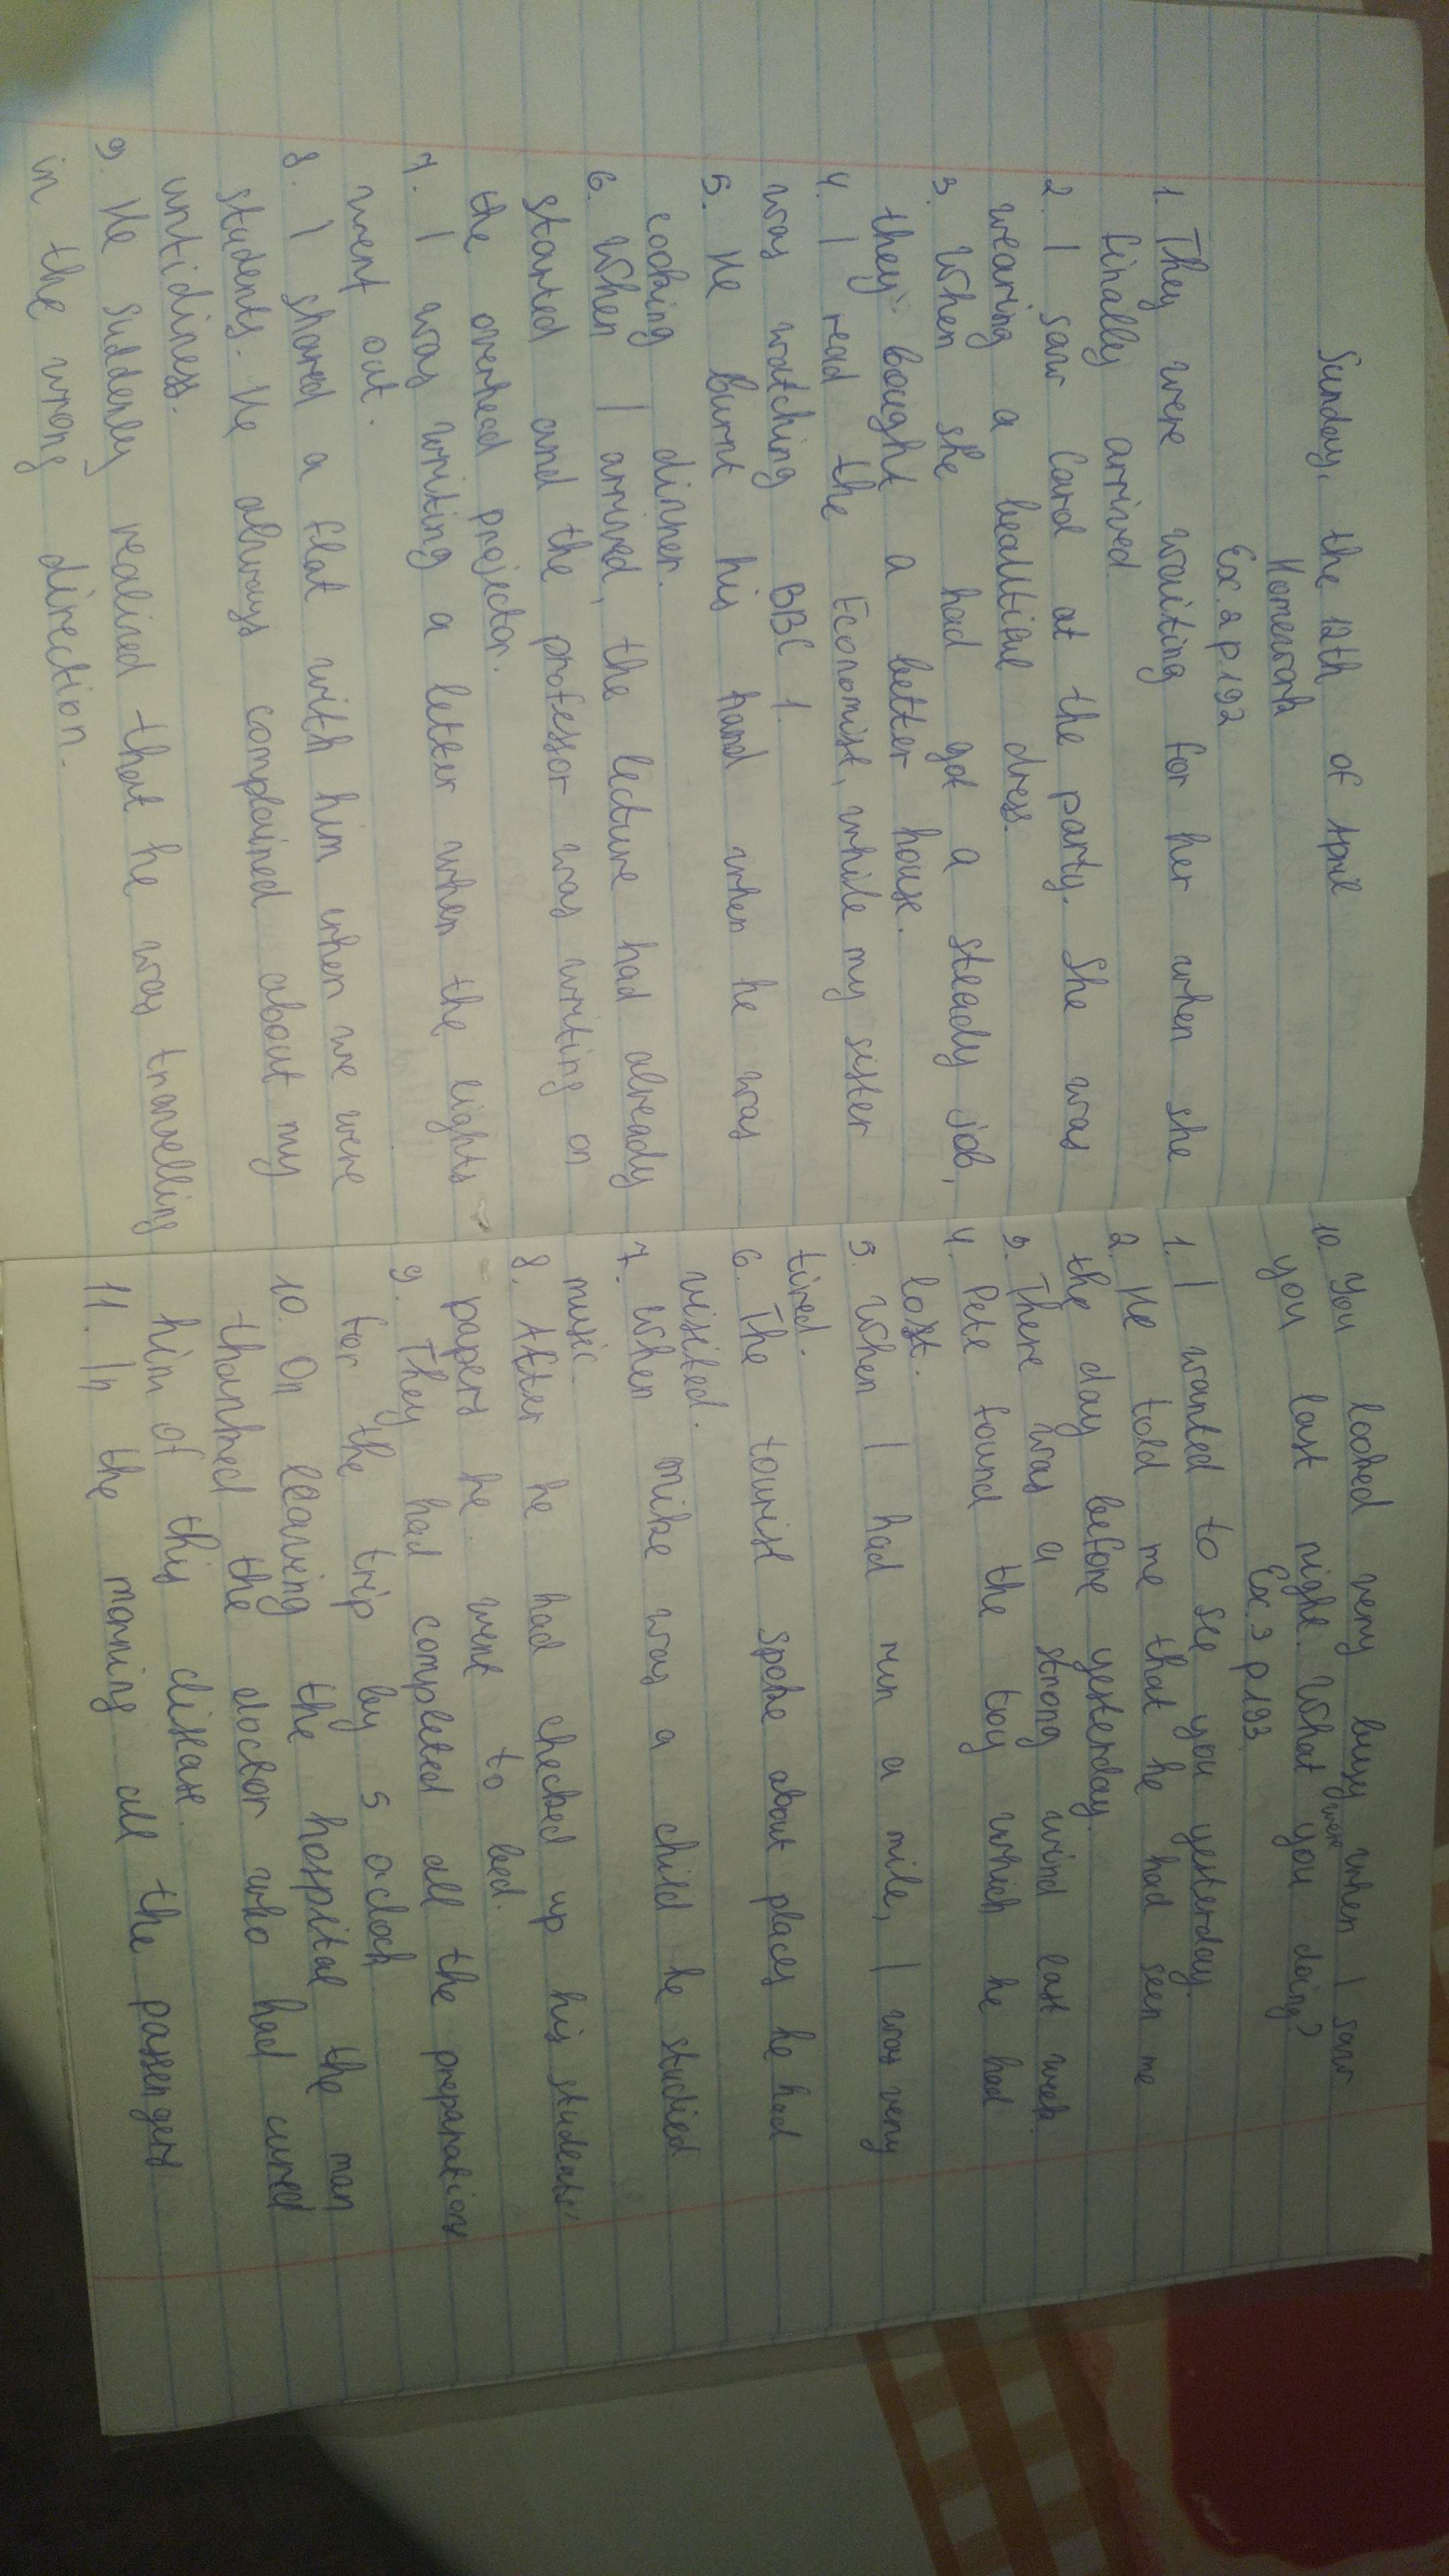 Sunday, the 12th of April
Homework
Ex. 2 p 192
1. They were waiting for her when she
finally arrived.
2. I saw Carol at the party. She was
wearing a beautiful dress.
3. When she had got a steady job,
they bought a better house.
4. I read the Economist, while my sister
was watching BBC 1.
5. He burnt his hand when he was
cooking dinner.
6. When I arrived, the lecture had already
started and the professor was writing on
the overhead projector.
7. I was writing a letter when the lights
went out.
8. I shared a flat with him when we were
students. He always complained about my
untidiness.
9. He suddenly realised that he was travelling
in the wrong direction.
10. You looked very busy when I saw
you last night. What were you doing?
Ex. 3 p 193
1. I wanted to see you yesterday.
2. He told me that he had seen me
the day before yesterday.
3. There was a strong wind last week.
4. Pete found the toy which he had
lost.
5. When I had run a mile, I was very
tired.
6. The tourist spoke about places he had
visited.
7. When Mike was a child he studied
music.
8. After he had checked up his students'
papers he went to bed.
9. They had completed all the preparations
for the trip by 5 oclock
10. On leaving the hospital the man
thanked the doctor who had cured
him of this disease.
11. In the morning all the passengers